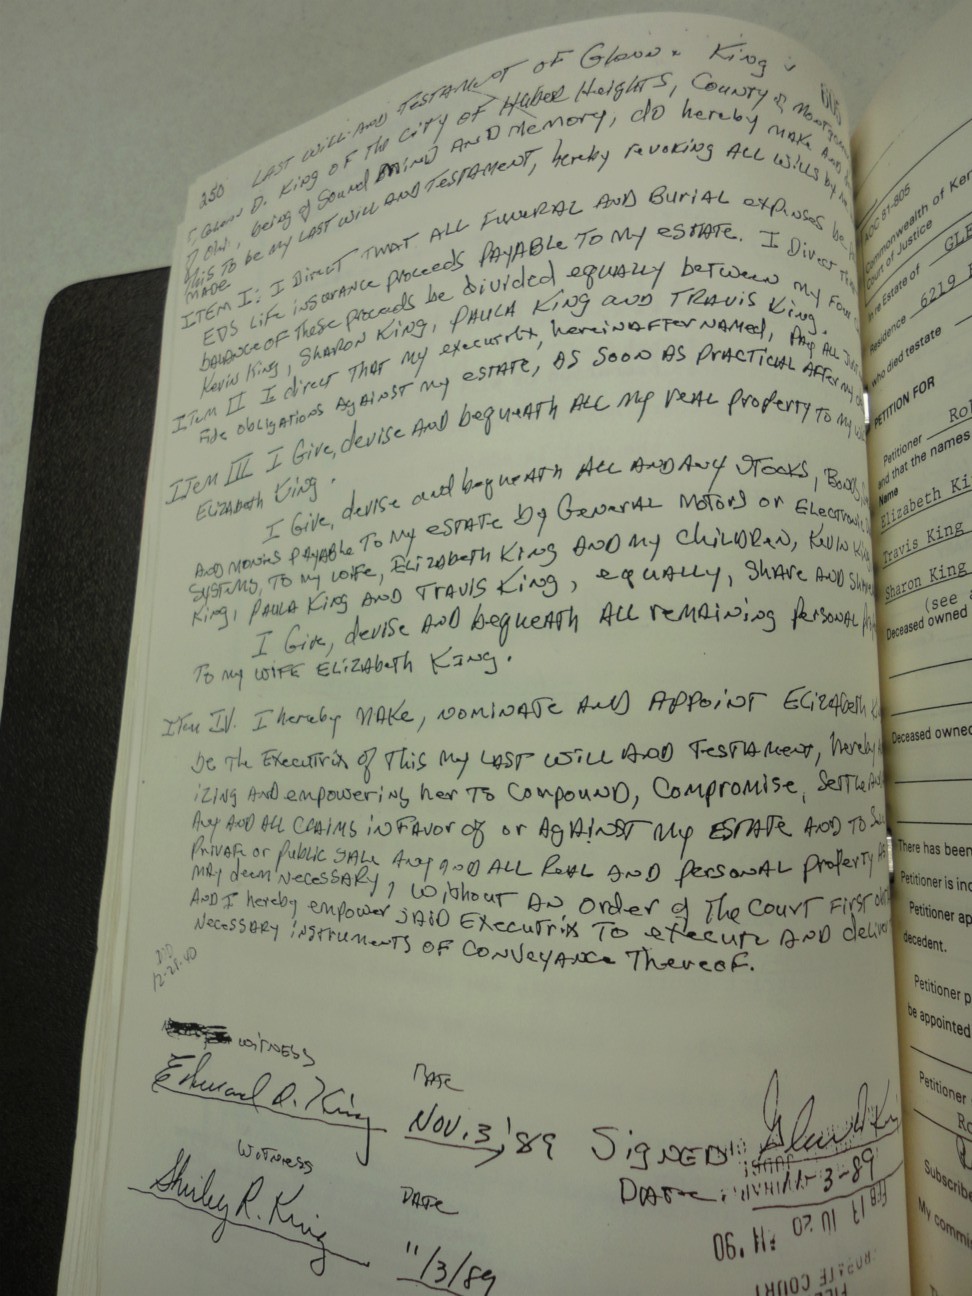 250 LAST WILL AND TESTAMENT OF Glenn D. King
I, Glenn D. King OF the City OF Huber Heights, County of Montgomery
being of sound mind AND memory, do hereby make AND
this to be my LAST WILL AND TESTAMENT, hereby revoking ALL wills by me
MADE
ITEM I: I Direct THAT ALL FUNERAL AND Burial expenses be
EDS Life insurance proceeds PAYABLE TO my estate. I Direct
balance of these proceeds be divided equally between my Four
Kevin King, Sharon King, PAULA KING and TRAVIS King.
Item II I direct THAT my executrix, hereinafter named, PAY ALL
obligations against my estate, AS SOON AS PRACTICAL AFTER my
ITEM III I Give, devise AND bequeath ALL my real property to my
ELIZABETH King.
I Give, devise and bequeath ALL AND ANY STOCKS, BONDS,
AND MONIES PAYABLE TO my estate by GENERAL MOTORS or Electronic
SYSTEMS, TO my wife, ELIZABETH KING AND my children, Kevin
King, PAULA KING AND TRAVIS KING, equally, SHARE AND
I Give, devise AND bequeath ALL remaining personal
To my WIFE ELIZAbeth KING.
ITem IV. I hereby MAKE, NOMINATE AND APPOINT ELIZABETH
be the Executrix of This my LAST WILL AND TESTAMENT, hereby
izing AND empowering her TO COMPOUND, COMPROMISE, Settle AND
Any AND ALL CLAIMS in FAVOR of or AGAINST my ESTATE AND TO
Private or public SALE ANY AND ALL REAL AND personal property
may deem NECESSARY, without AN order of The Court First
AND I hereby empower SAID EXECUTRIX TO execute AND deliver
Necessary instruments OF CONVEYANCE Thereof.
WITNESS DATE
Edward A. King NOV. 3, '89 SIGNED: Glenn D. King
WITNESS DATE: 11-3-89
Shirley R. King DATE 11/3/89
FEB 17 10 20 AM '90
COURT
AOC 81-805
Commonwealth of Ken
Court of Justice
In re Estate of GLE
Residence 6219
who died testate
PETITION FOR
Petitioner
and that the names
Name
Elizabeth Ki
Travis King
Sharon King
(see a
Deceased owned
Deceased owned
There has been
Petitioner is
Petitioner ap
decedent.
Petitioner p
be appointed
Petitioner
Subscribe
My commi